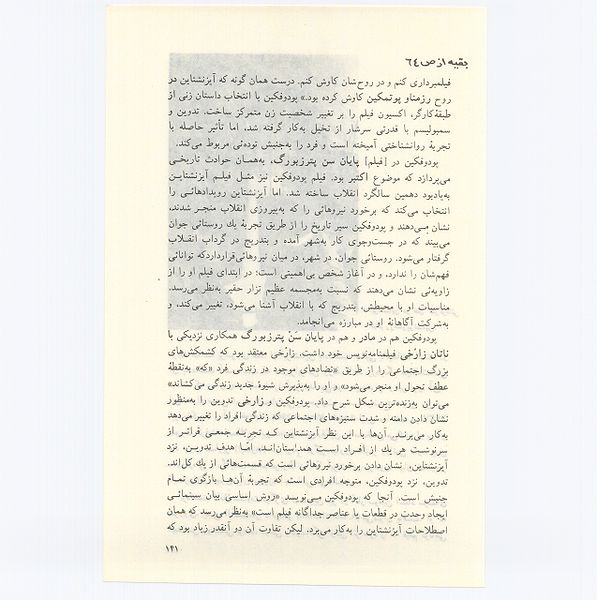 بقیه از ص ٦٤
فیلمبرداری کنم و در روح‌شان کاوش کنم. درست همان گونه که آیزنشتاین در
روح رزمناو پوتمکین کاوش کرده بود.» پودوفکین با انتخاب داستان زنی از
طبقهٔ کارگر، اکسیون فیلم را بر تغییر شخصیت زن متمرکز ساخت. تدوین و
سمبولیسم با قدرتی سرشار از تخیل به‌کار گرفته شد، اما تأثیر حاصله با
تجربهٔ روانشناختی آمیخته است و فرد را به‌جنبش توده‌ئی مربوط می‌کند.
پودوفکین در [فیلم] پایان سن پترزبورگ، به‌همان حوادث تاریخی
می‌پردازد که موضوع اکتبر بود. فیلم پودوفکین نیز مثل فیلم آیزنشتاین
به‌یادبود دهمین سالگرد انقلاب ساخته شد. اما آیزنشتاین رویدادهائی را
انتخاب می‌کند که برخورد نیروهائی را که به‌پیروزی انقلاب منجر شدند،
نشان می‌دهند و پودوفکین سیر تاریخ را از طریق تجربهٔ یك روستائی جوان
می‌بیند که در جست‌وجوی کار به‌شهر آمده و بتدریج در گرداب انقلاب
گرفتار می‌شود. روستائی جوان، در شهر، در میان نیروهائی‌قراردارد‌که توانائی
فهم‌شان را ندارد، و در آغاز شخص بی‌اهمیتی است؛ در ابتدای فیلم او را از
زاویه‌ئی نشان می‌دهند که نسبت به‌مجسمه عظیم تزار حقیر به‌نظر می‌رسد.
مناسبات او با محیطش، بتدریج که با انقلاب آشنا می‌شود، تغییر می‌کند، و
به‌شرکت آگاهانهٔ او در مبارزه می‌انجامد.
پودوفکین هم در مادر و هم در پایان سَنْ پترزبورگ همکاری نزدیکی با
ناتان زارْخی فیلمنامه‌نویس خود داشت. زارْخی معتقد بود که کشمکش‌های
بزرگ اجتماعی را از طریق «تضادهای موجود در زندگی فرد «که» به‌نقطهٔ
عطف تحول او منجر می‌شود» و او را به‌پذیرش شیوهٔ جدید زندگی می‌کشاند»
می‌توان به‌زنده‌ترین شکل شرح داد. پودوفکین و زارخی تدوین را به‌منظور
نشان دادن دامنه و شدت ستیزه‌های اجتماعی که زندگی افراد را تغییر می‌دهد
به‌کار می‌برند. آن‌ها با این نظر آیزنشتاین که تجربه جمعی فراتر از
سرنوشت هر یك از افراد است همداستان‌اند، امّا هدف تدوین، نزد
آیزنشتاین، نشان دادن برخورد نیروهائی است که قسمت‌هائی از یك کل‌اند.
تدوین، نزد پودوفکین، متوجه افرادی است که تجربهٔ آن‌ها بازگوی تمام
جنبش است. آنجا که پودوفکین می‌نویسد «روش اساسی بیان سینمائی
ایجاد وحدت در قطعات یا عناصر جداگانه فیلم است» به‌نظر می‌رسد که همان
اصطلاحات آیزنشتاین را به‌کار می‌برد. لیکن تفاوت آن دو آنقدر زیاد بود که
١٤١